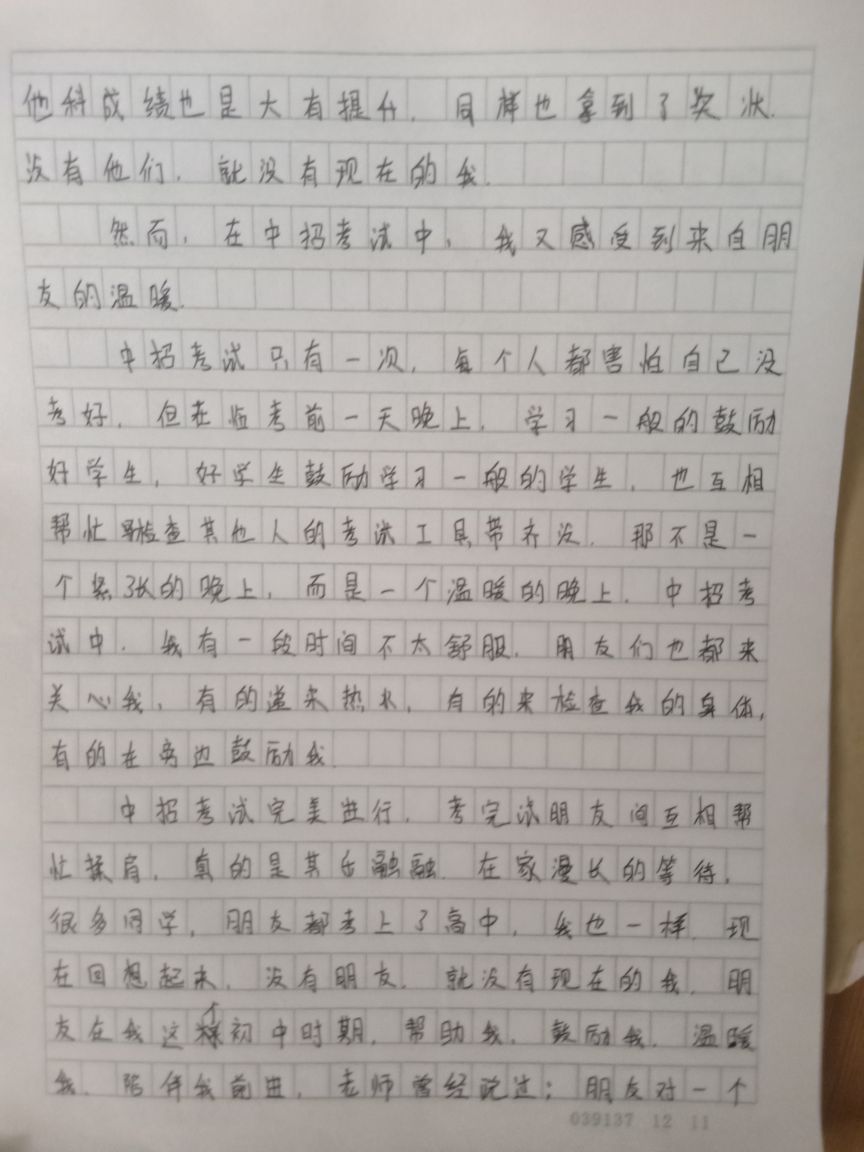 他科成绩也是大有提升.同样也拿到了奖状.
没有他们.就没有现在的我.
然而,在中招考试中,我又感受到来自朋
友的温暖.
中招考试只有一次,每个人都害怕自己没
考好.但在临考前一天晚上.学习一般的鼓励
好学生,好学生鼓励学习一般的学生,也互相
帮忙检查其他人的考试工具带齐没.那不是一
个紧张的晚上,而是一个温暖的晚上.中招考
试中.我有一段时间不太舒服.朋友们也都来
关心我,有的递来热水,有的来检查我的身体,
有的在旁边鼓励我.
中招考试完美进行.考完试朋友间互相帮
忙揉肩,真的是其乐融融.在家漫长的等待,
很多同学,朋友都考上了高中,我也一样.现
在回想起来.没有朋友.就没有现在的我.朋
友在我这个初中时期.帮助我.鼓励我.温暖
我.陪伴我前进.老师曾经说过:朋友对一个
039137 12 11